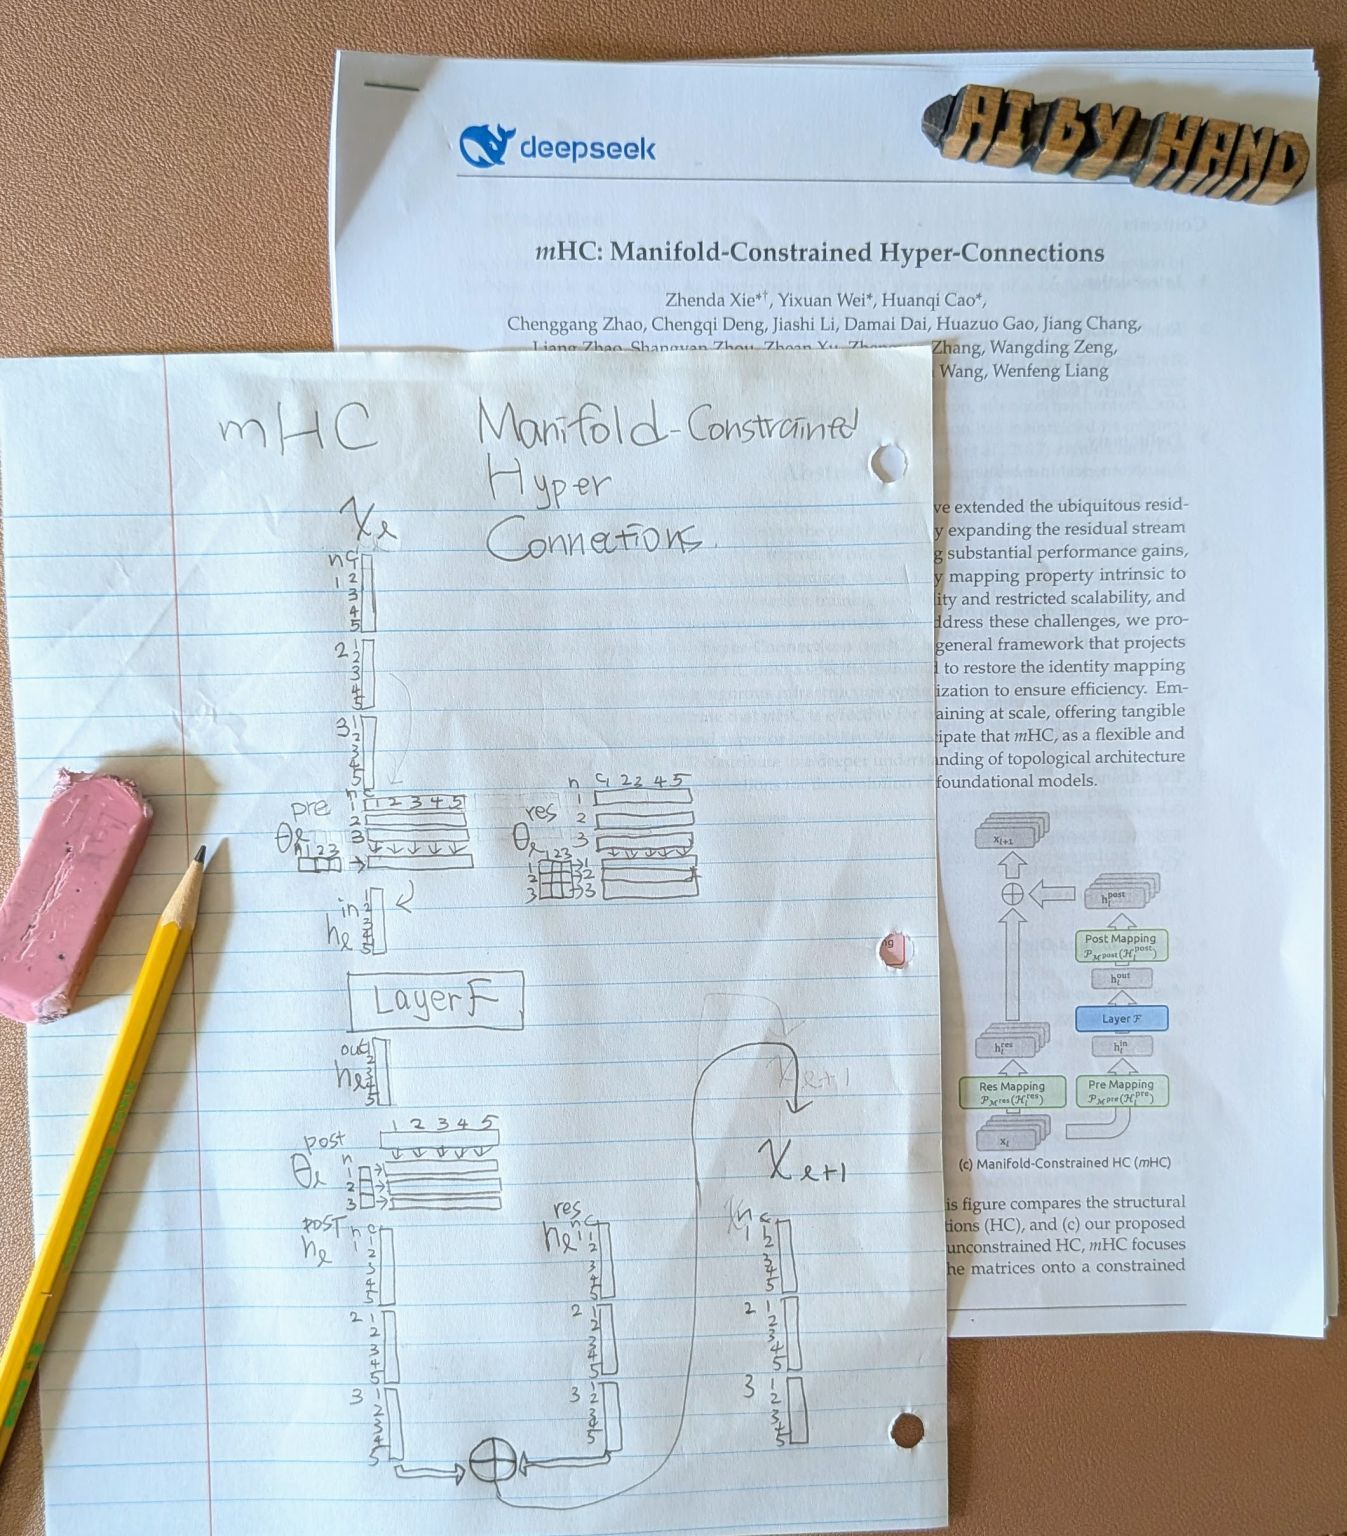 AI by HAND
deepseek
mHC: Manifold-Constrained Hyper-Connections
Zhenda Xie*†, Yixuan Wei*, Huanqi Cao*,
Chenggang Zhao, Chengqi Deng, Jiashi Li, Damai Dai, Huazuo Gao, Jiang Chang,
Liang Zhao, Shangyan Zhou, Zhean Xu, Zhang, Wangding Zeng,
Wang, Wenfeng Liang
ve extended the ubiquitous resid-
y expanding the residual stream
g substantial performance gains,
y mapping property intrinsic to
ity and restricted scalability, and
ddress these challenges, we pro-
general framework that projects
to restore the identity mapping
ization to ensure efficiency. Em-
aining at scale, offering tangible
ipate that mHC, as a flexible and
nding of topological architecture
foundational models.
x_{l+1}
h_l^{post}
Post Mapping
P_{M^{post}}(H_l^{post})
h_l^{out}
Layer F
h_l^{res}
h_l^{in}
Res Mapping
P_{M^{res}}(H_l^{res})
Pre Mapping
P_{M^{pre}}(H_l^{pre})
x_l
(c) Manifold-Constrained HC (mHC)
is figure compares the structural
tions (HC), and (c) our proposed
unconstrained HC, mHC focuses
he matrices onto a constrained
mHC Manifold-Constrained
Hyper
Connections.
X_l
n C
1 1 2 3 4 5
2 1 2 3 4 5
3 1 2 3 4 5
pre
θ_l
n C
1 2 3 4 5
1
2
3
n 1 2 3
res
θ_l
n C 1 2 3 4 5
1
2
3
1 2 3
1 1
2 2
3 3
in
h_l
1 2 3 4 5
Layer F
out
h_l
1 2 3 4 5
post
θ_l
1 2 3 4 5
n
1
2
3
post
h_l
n C
1 1 2 3 4 5
2 1 2 3 4 5
3 1 2 3 4 5
res
h_l
n C
1 1 2 3 4 5
2 1 2 3 4 5
3 1 2 3 4 5
X_{l+1}
X_{l+1}
n C
1 1 2 3 4 5
2 1 2 3 4 5
3 1 2 3 4 5